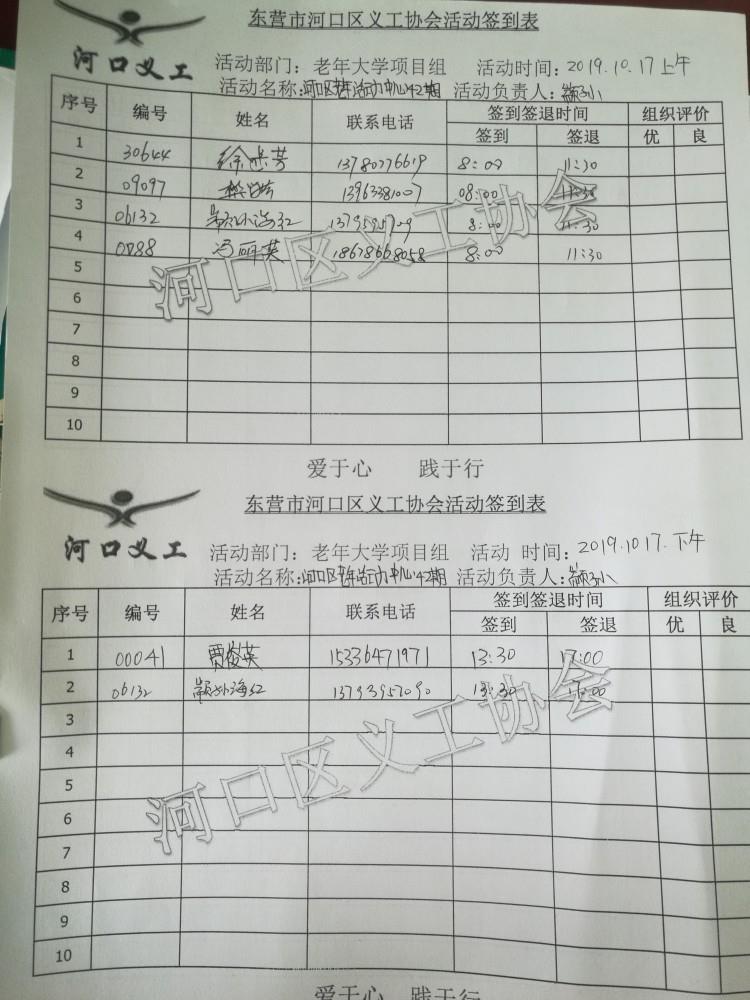 东营市河口区义工协会活动签到表
河口义工
活动部门：老年大学项目组 活动时间：2019.10.17上午
活动名称：河口区老年活动中心42期 活动负责人：
序号 编号 姓名 联系电话 签到签退时间 组织评价
签到 签退 优 良
1 30644 芳 13780776619 8:00 11:30
2 09097 13963381007 08:00 11:30
3 06132 8:00 11:30
4 冯丽英 18678668058 8:00 11:30
5
6
7
8
9
10
河口区义工协会
爱于心 践于行
东营市河口区义工协会活动签到表
河口义工
活动部门：老年大学项目组 活动 时间：2019.10 17.下午
活动名称：河口区老年活动中心42期 活动负责人：
序号 编号 姓名 联系电话 签到签退时间 组织评价
签到 签退 优 良
1 00041 贾俊英 15336471971 13:30 17:00
2 06132 13793957090 13:30 17:00
3
4
5
6
7
8
9
10
河口区义工协会
爱于心 践于行